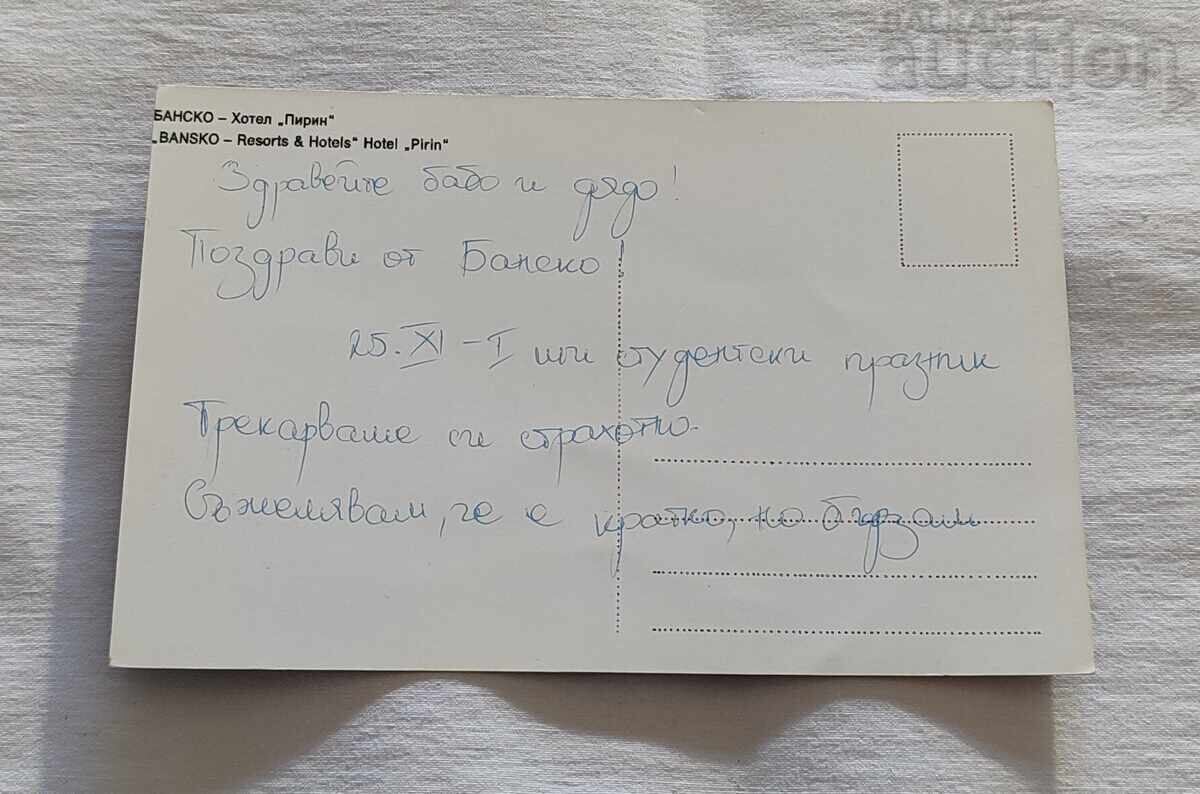 BALKAN
auction
БАНСКО – Хотел „Пирин“
„BANSKO – Resorts & Hotels“ Hotel „Pirin“
Здравейте бабо и дядо!
Поздрави от Банско!
25. XI – I ши студентски празник
Прекарваше си страхотно.
Съжелявам, че е кратко, но бързам